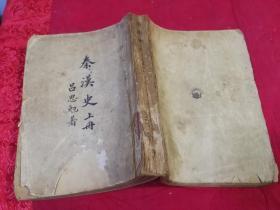 秦漢史上冊
呂思勉著